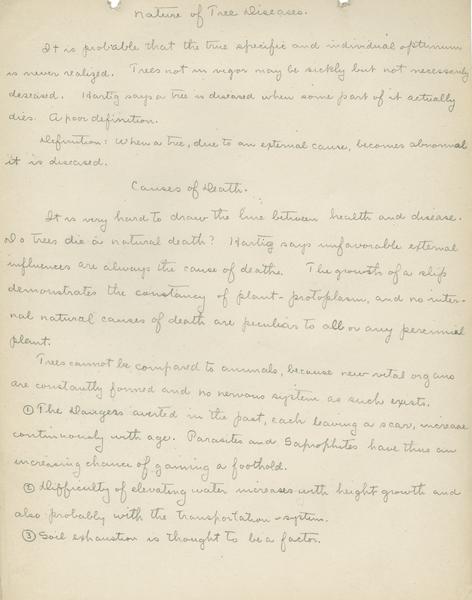 Nature of Tree Diseases.
It is probable that the true specific and individual optimum
is never realized. Trees not in vigor may be sickly but not necessarily
deseased. Hartig says a tree is diseased when some part of it actually
dies. A poor definition.
Definition: When a tree, due to an external cause, becomes abnormal
it is diseased.
Causes of Death.
It is very hard to draw the line between health and disease.
Do trees die a natural death? Hartig says unfavorable external
influences are always the cause of deathe. The growth of a slip
demonstrates the constancy of plant-protoplasm, and no inter-
nal natural causes of death are peculiar to all or any perennial
plant.
Trees cannot be compared to animals, because new vital organs
are constantly formed and no nervous system as such exists.
① The Dangers averted in the past, each leaving a scar, increase
continuously with age. Parasites and Saprophites have thus an
increasing chance of gaining a foothold.
② Difficulty of elevating water increases with height growth and
also probably with the transportation-system.
③ Soil exhaustion is thought to be a factor.